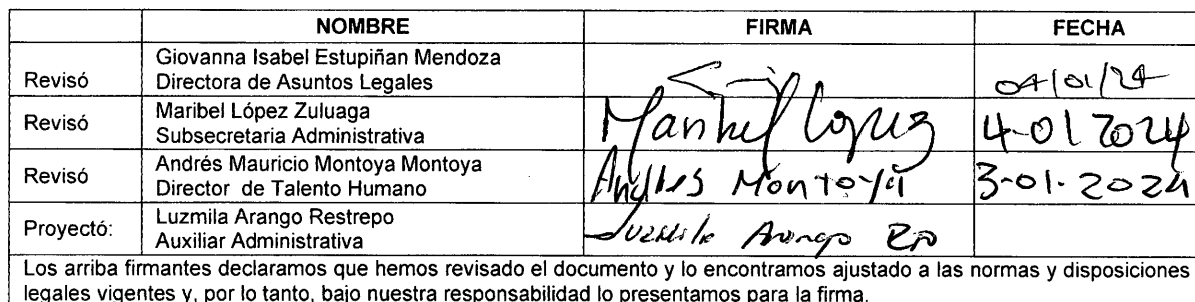 NOMBRE FIRMA FECHA
Giovanna Isabel Estupiñan Mendoza
Revisó Directora de Asuntos Legales 04/01/24
Maribel López Zuluaga
Revisó Subsecretaria Administrativa Maribel López 4-01 2024
Andrés Mauricio Montoya Montoya
Revisó Director de Talento Humano Andres Montoya 3-01-2024
Luzmila Arango Restrepo
Proyectó: Auxiliar Administrativa Luzmila Arango
Los arriba firmantes declaramos que hemos revisado el documento y lo encontramos ajustado a las normas y disposiciones
legales vigentes y, por lo tanto, bajo nuestra responsabilidad lo presentamos para la firma.